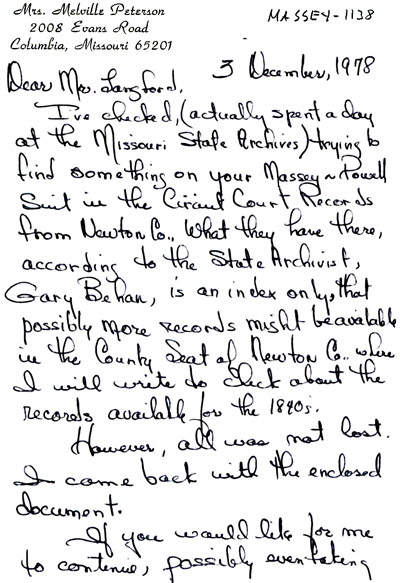 Mrs. Melville Peterson
2008 Evans Road
Columbia, Missouri 65201
MASSEY-1138
3 December, 1978
Dear Mr. Langford,
I've checked, (actually spent a day
at the Missouri State Archives) trying to
find something on your Massey ~ Powell
Suit in the Circuit Court Records
from Newton Co.. What they have there,
according to the State Archivist,
Gary Behan, is an index only, that
possibly more records might be available
in the County Seat of Newton Co.. where
I will write to check about the
records available for the 1840s.
However, all was not lost.
I come back with the enclosed
document.
If you would like for me
to continue, possibly even taking